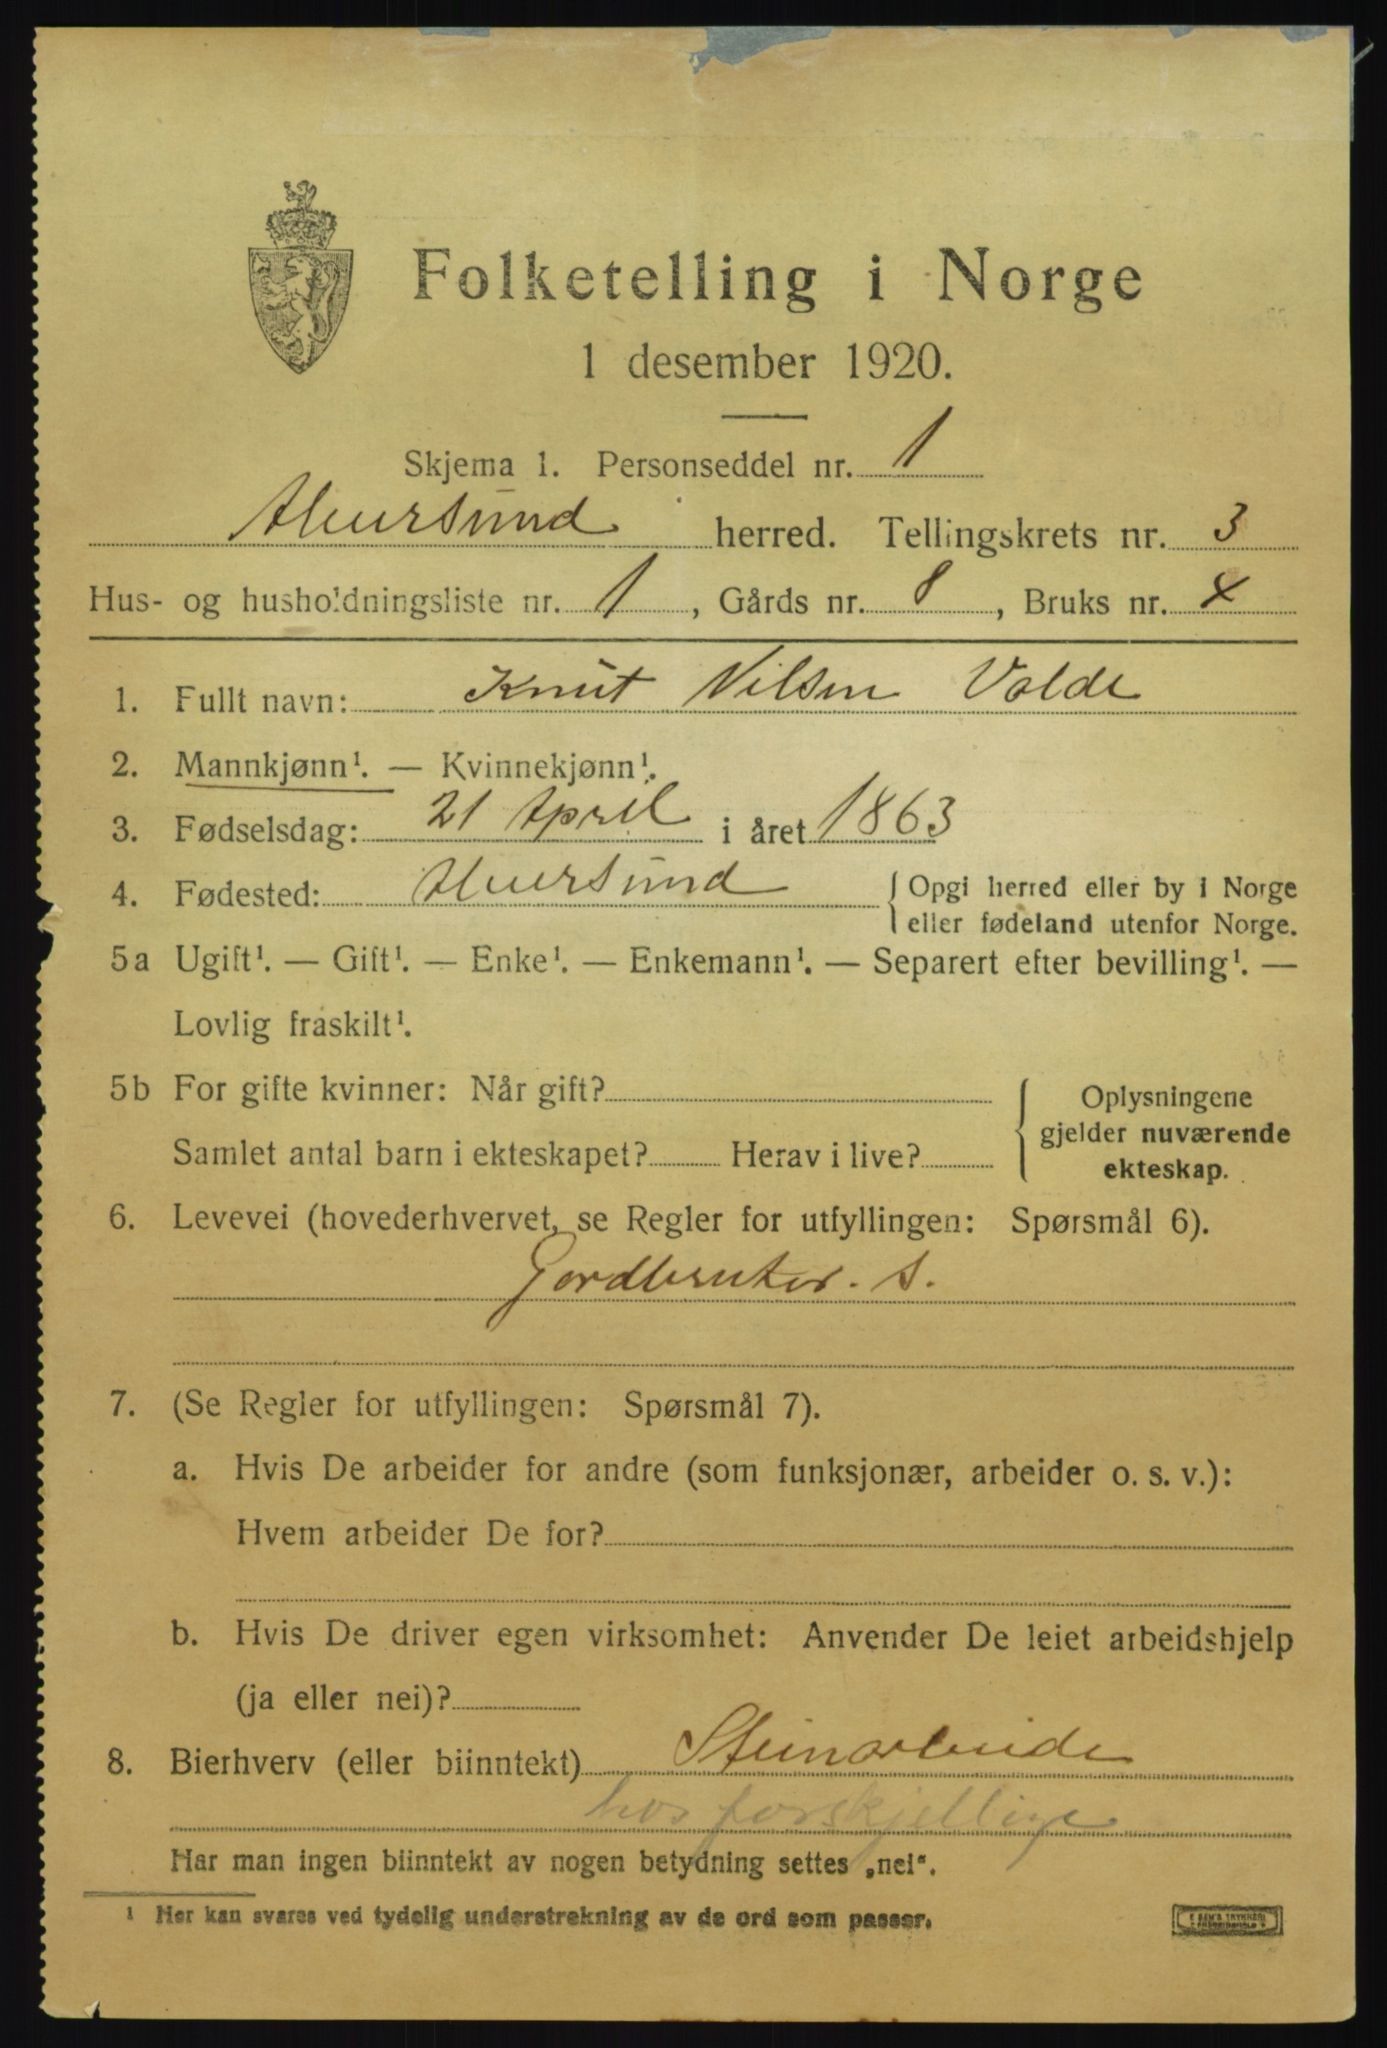 Folketelling i Norge
1 desember 1920.
Skjema 1. Personseddel nr. 1
Alversund herred. Tellingskrets nr. 3
Hus- og husholdningsliste nr. 1, Gårds nr. 8, Bruks nr. 4
1. Fullt navn: Knut Nilsen Valde
2. Mannkjønn¹. — Kvinnekjønn¹.
3. Fødselsdag: 21 April i året 1863
4. Fødested: Alversund { Opgi herred eller by i Norge
eller fødeland utenfor Norge.
5a Ugift¹. — Gift¹. — Enke¹. — Enkemann¹. — Separert efter bevilling¹. —
Lovlig fraskilt¹.
5b For gifte kvinner: Når gift? { Oplysningene
gjelder nuværende
Samlet antal barn i ekteskapet? Herav i live? ekteskap.
6. Levevei (hovederhvervet, se Regler for utfyllingen: Spørsmål 6).
Gardbruker. s.
7. (Se Regler for utfyllingen: Spørsmål 7).
a. Hvis De arbeider for andre (som funksjonær, arbeider o. s. v.):
Hvem arbeider De for?
b. Hvis De driver egen virksomhet: Anvender De leiet arbeidshjelp
(ja eller nei)?
8. Bierhverv (eller biinntekt) Steinarbeide
hos forskjellige
Har man ingen biinntekt av nogen betydning settes „nei“.
¹ Her kan svares ved tydelig understrekning av de ord som passer.